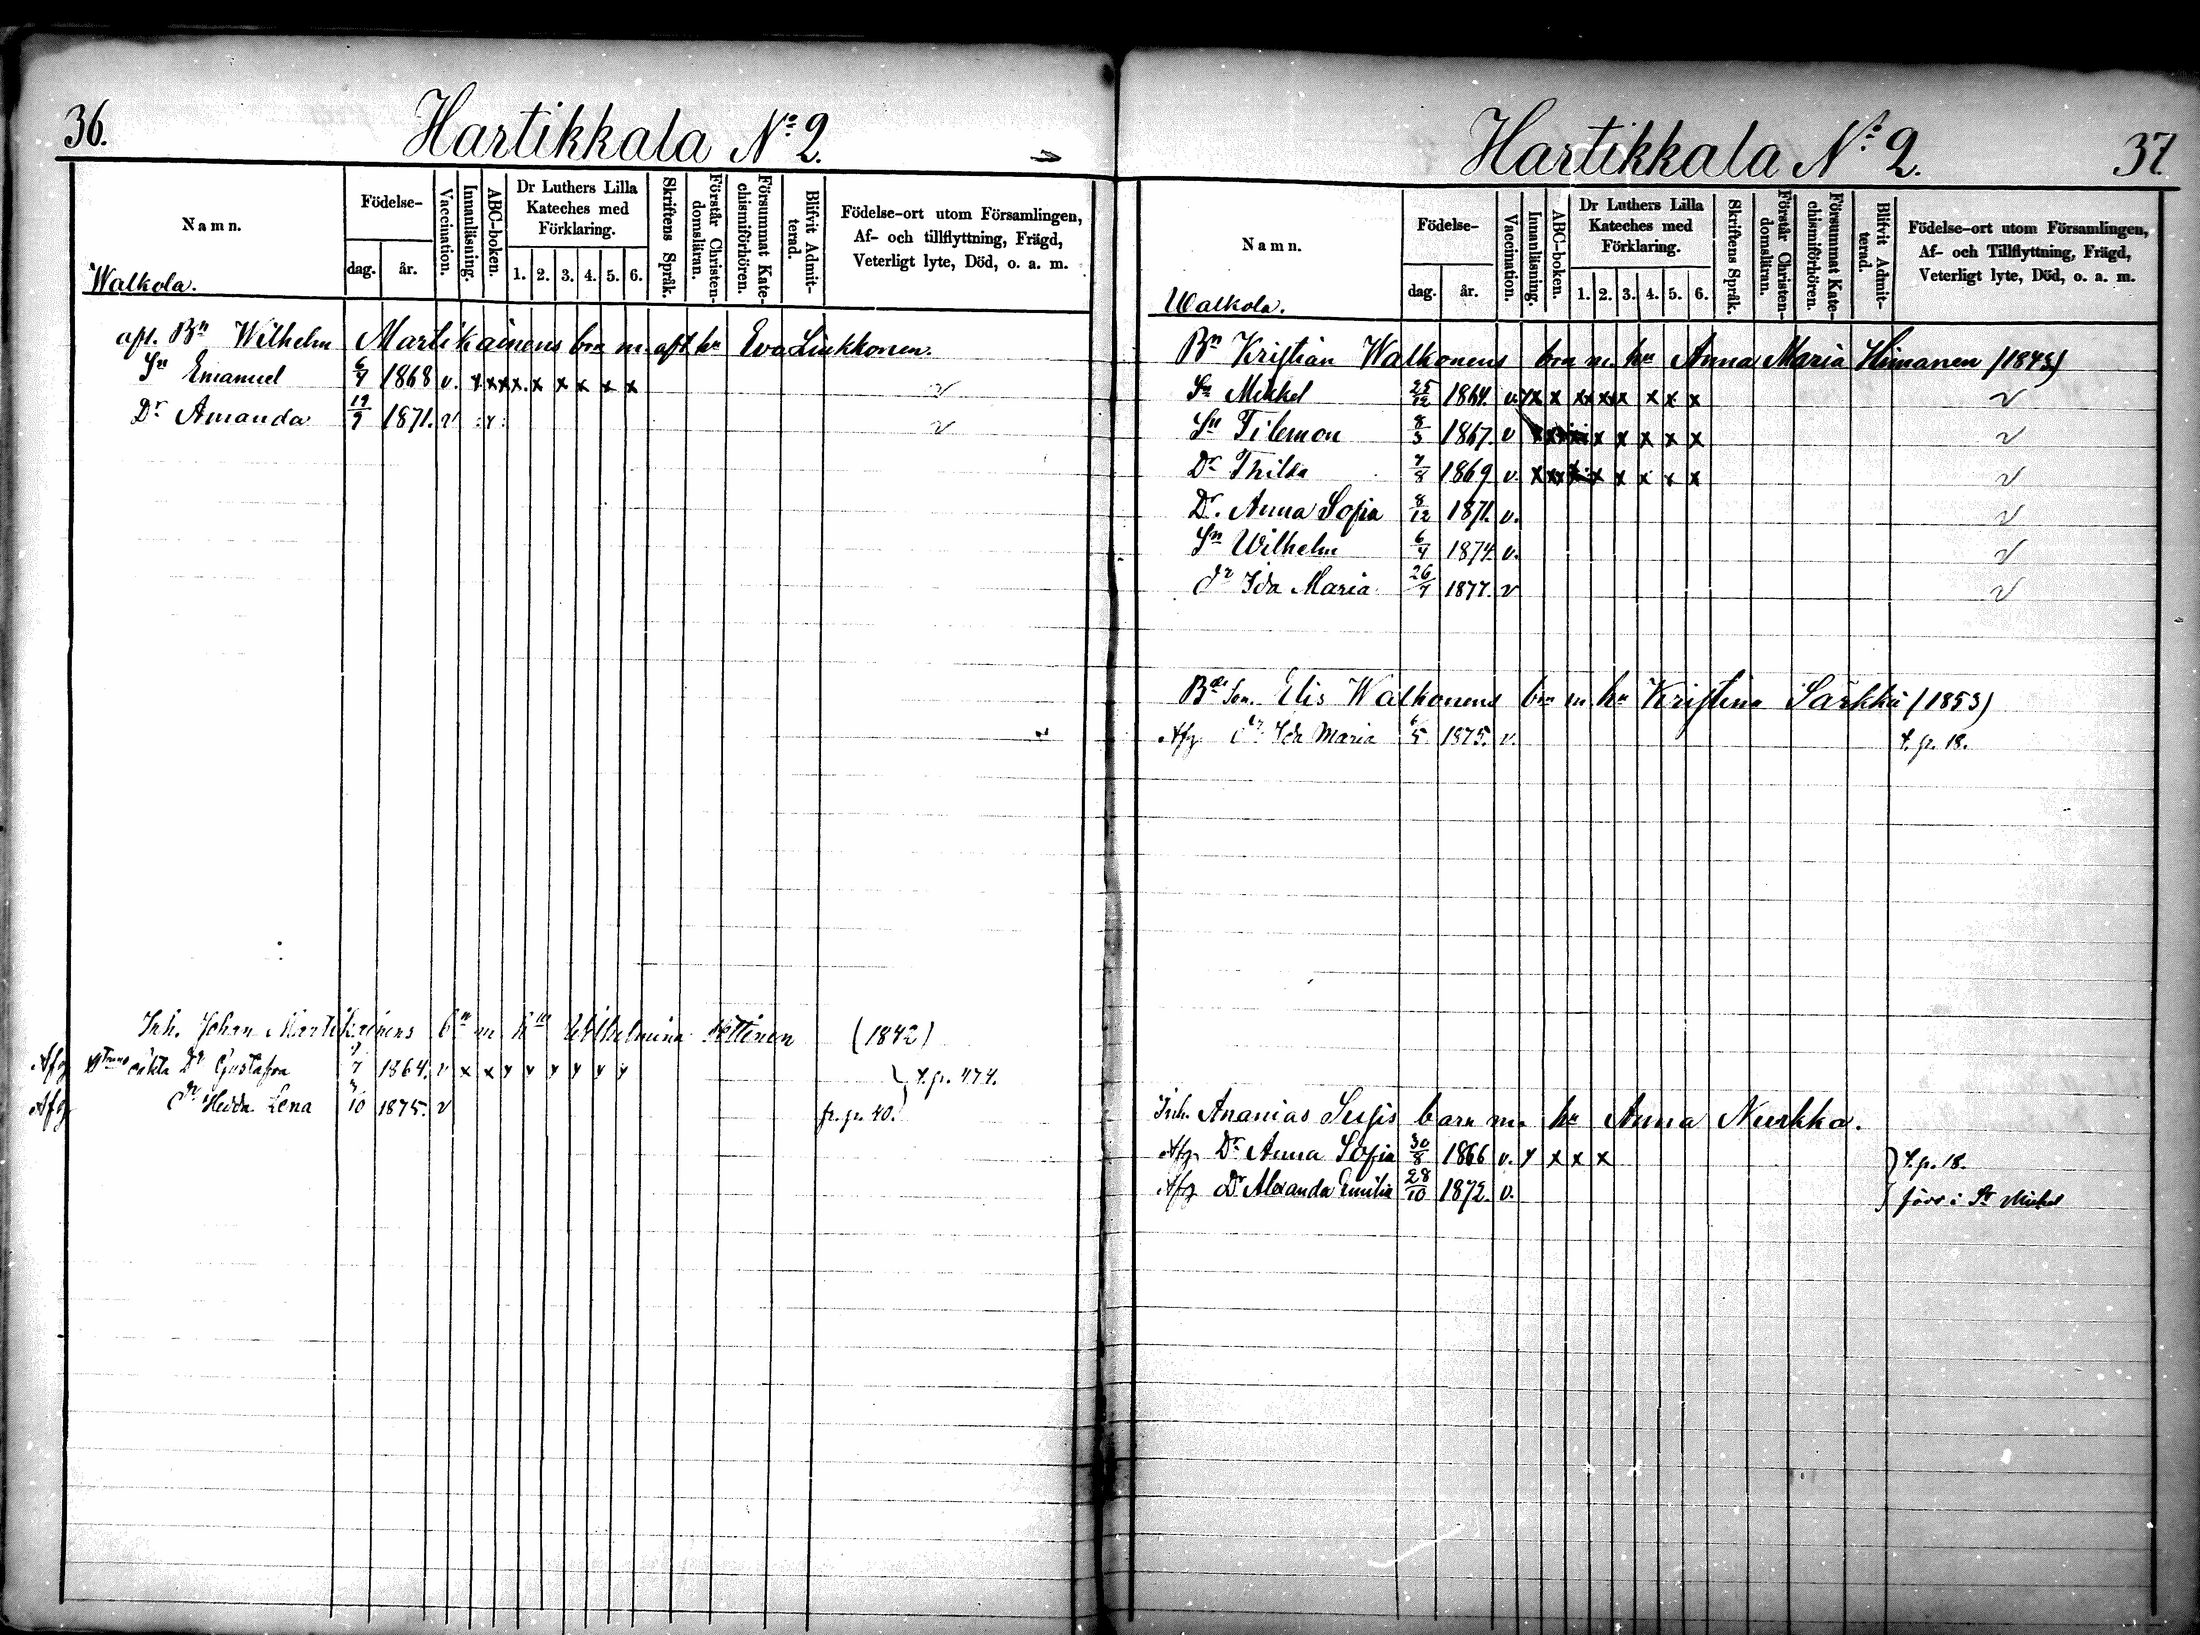 36.
Hartikkala No 2.
Namn.
Födelse-
dag. år.
Vaccination.
Innanläsning.
ABC-boken.
Dr Luthers Lilla Kateches med Förklaring.
1. 2. 3. 4. 5. 6.
Skriftens Språk.
Förstår Christendomsläran.
Försummat Katechismiförhören.
Blifvit Admitterad.
Födelse-ort utom Församlingen,
Af- och tillflyttning, Frägd,
Veterligt lyte, Död, o. a. m.
Walkola.
afl. Bn Wilhelm Martikainens brn m. aft. hu Eva Liukkonen.
Sn Emanuel 6/4 1868 v. x x x x. x x x x x v
Dr Amanda 19/9 1871. v x v
Inh. Johan Martikainens bn m hu Wilhelmina (1842)
Afg äkta Dr Gustafva 1864. v x x x x x x x x } t. p. 474.
Afg dr Hedda Lena 10 1875. v fr. p. 40.
Hartikkala No 2.
37
Namn.
Födelse-
dag. år.
Vaccination.
Innanläsning.
ABC-boken.
Dr Luthers Lilla Kateches med Förklaring.
1. 2. 3. 4. 5. 6.
Skriftens Språk.
Förstår Christendomsläran.
Försummat Katechismiförhören.
Blifvit Admitterad.
Födelse-ort utom Församlingen,
Af- och Tillflyttning, Frägd,
Veterligt lyte, Död, o. a. m.
Walkola.
Bn Kristian Walkonens brn m. hu Anna Maria Himanen (1843)
Sn Mikkel 25/12 1864. v. x x x x x x x x x v
Sn Filemon 8/3 1867. v x x x x x x x x v
Dr Thilda 7/8 1869 v. x x x x x x x x v
Dr. Anna Sofia 8/12 1871. v. v
Sn Wilhelm 6/4 1874. v. v
dr Ida Maria 26/7 1877. v v
Bde Son. Elis Walkonens brn m hu Kristina Särkkä (1853)
Afg dr Ida Maria 5 1875. v. t. p. 18.
Inh. Ananias Susis barn m. hu Anna Nurkka.
Afg. Dr Anna Sofia 30/8 1866 v. x x x x } t. p. 18.
Afg Dr Alexanda Emilia 28/10 1872. v. }förr i St Michel